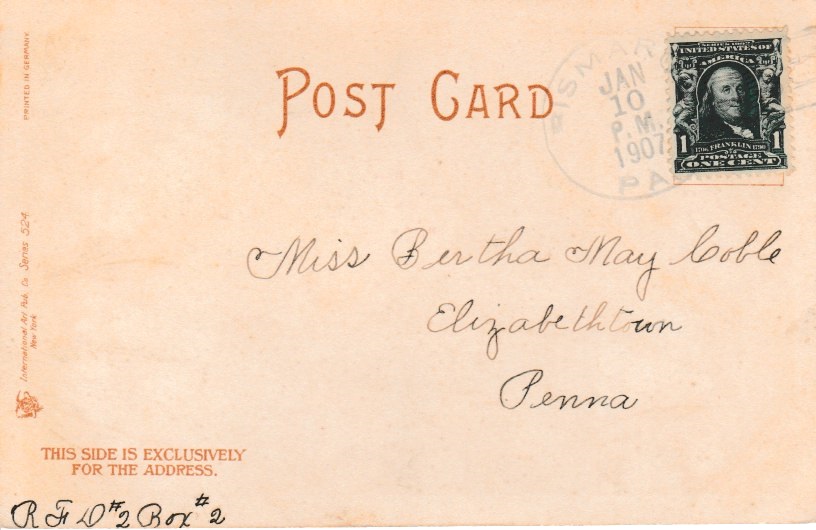 PRINTED IN GERMANY.
POST CARD
BISMARCK
JAN
10
P.M.
1907
PA
SERIES 1902
UNITED STATES OF
AMERICA
1 1706 FRANKLIN 1790 1
POSTAGE
ONE CENT
Miss Bertha May Coble
Elizabethtown
Penna
International Art Pub. Co. Series 524
New York
THIS SIDE IS EXCLUSIVELY
FOR THE ADDRESS.
R F D #2 Box #2